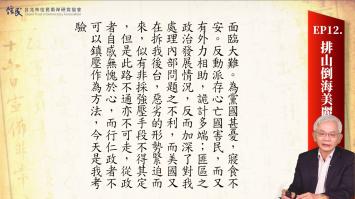 信民
台北市信民兩岸研究協會
EP12.排山倒海美麗
面臨大難。為黨國甚憂，寢食不
安。反動派存心亡國害民，而又
有外力相助，詭計多端；匪區之
政治發展情況，反而加深了對我
處理內部問題之不利，而美國又
在拆我後台，惡劣的形勢緊迫而
來，似有非採強硬手段不得其定
，但是此路不通亦不可走，從政
者自感無愧於心，而行仁政者不
可以鎮壓作為方法，今天是我考
驗